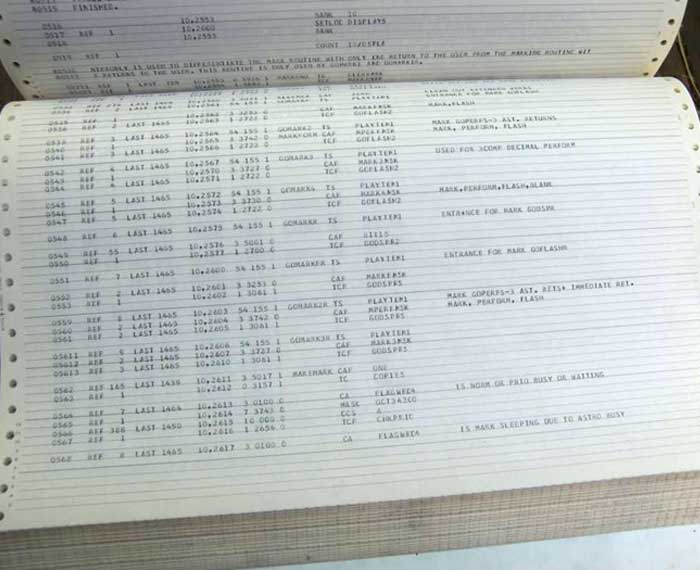 FINISHED.
0516 10,2553 BANK 10
0517 REF 1 10,2600 SETLOC DISPLAYS
0518 10,2553 BANK
COUNT 10/DSPLA
R0520 MERGONLY IS USED TO DIFFERENTIATE THE MARK ROUTINE WITH ONLY THE RETURN TO THE USER FROM THE MARKING ROUTINE WIT
3 RETURNS TO THE USER. THIS ROUTINE IS ONLY USED BY GOMARKF AND GOMARKIN.
TS PLAYTEM1
CAF MARK2MSK MARK,FLASH
TCF GOFLASH2
0539 REF 3 LAST 1465 10,2564 54 155 1 GOMARK2 TS PLAYTEM1 MARK GOPERFS-3 AST. RETURNS
0540 REF 1 10,2565 3 3742 0 MARKFORM CAF MPERFMSK MARK, PERFORM, FLASH
0541 REF 3 LAST 1465 10,2566 1 2722 0 TCF GOFLASH2
0542 REF 4 LAST 1465 10,2567 54 155 1 GOMARK3 TS PLAYTEM1 USED FOR 3COMP DECIMAL PERFORM
0543 REF 1 10,2570 3 3727 0 CAF MARK3MSK
0544 REF 4 LAST 1465 10,2571 1 2722 0 TCF GOFLASH2
0545 REF 5 LAST 1465 10,2572 54 155 1 GOMARK4 TS PLAYTEM1 MARK,PERFORM,FLASH,BLANK
0546 REF 1 10,2573 3 3730 0 CAF MARK4MSK
0547 REF 5 LAST 1465 10,2574 1 2722 0 TCF GOFLASH2
0548 REF 6 LAST 1465 10,2575 54 155 1 GOMARKR TS PLAYTEM1 ENTRANCE FOR MARK GODSPR
0549 REF 55 LAST 1465 10,2576 3 5001 0 CAF BIT15
0550 REF 1 10,2577 1 2700 0 TCF GODSPR2
0551 REF 7 LAST 1465 10,2600 54 155 1 GOMARKFR TS PLAYTEM1 ENTRANCE FOR MARK GOFLASHR
0552 REF 2 LAST 1465 10,2601 3 3253 0 CAF MARKFMSK
0553 REF 1 10,2602 1 3061 1 TCF GODSPRS
0559 REF 8 LAST 1465 10,2603 54 155 1 GOMARK2R TS PLAYTEM1 MARK GOPERFS-3 AST. RETS+ IMMEDIATE RET.
0560 REF 2 LAST 1465 10,2604 3 3742 0 CAF MPERFMSK MARK, PERFORM, FLASH
0561 REF 2 LAST 1465 10,2605 1 3061 1 TCF GODSPRS
05611 REF 9 LAST 1465 10,2606 54 155 1 GOMARK3R TS PLAYTEM1
05612 REF 2 LAST 1465 10,2607 3 3727 0 CAF MARK3MSK
05613 REF 3 LAST 1465 10,2610 1 3061 1 TCF GODSPRS
0562 REF 165 LAST 1439 10,2611 3 5017 1 MAKEMARK CAF ONE
0563 REF 1 10,2612 0 3157 1 TC COPIES
0564 REF 7 LAST 1464 10,2613 3 0100 0 CA FLAGWRD4 IS NORM OR PRIO BUSY OR WAITING
0565 REF 1 10,2614 7 3743 0 MASK OCT34200
0566 REF 368 LAST 1450 10,2615 10 000 0 CCS A
0567 REF 1 10,2616 1 2656 0 TCF CHKPRIO
0568 REF 8 LAST 1465 10,2617 3 0100 0 CA FLAGWRD4 IS MARK SLEEPING DUE TO ASTRO BUSY